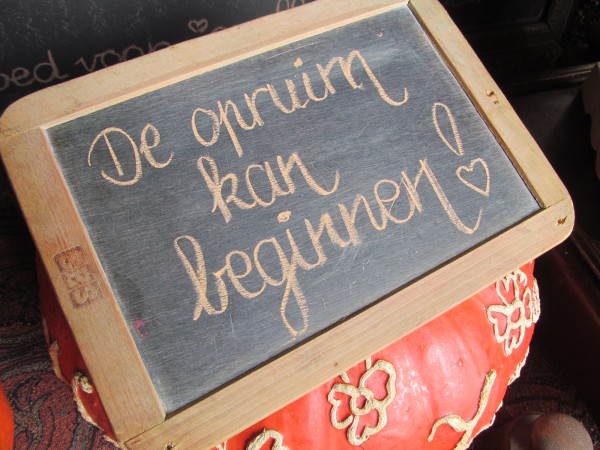 oed voor
De opruim
kan
beginnen!